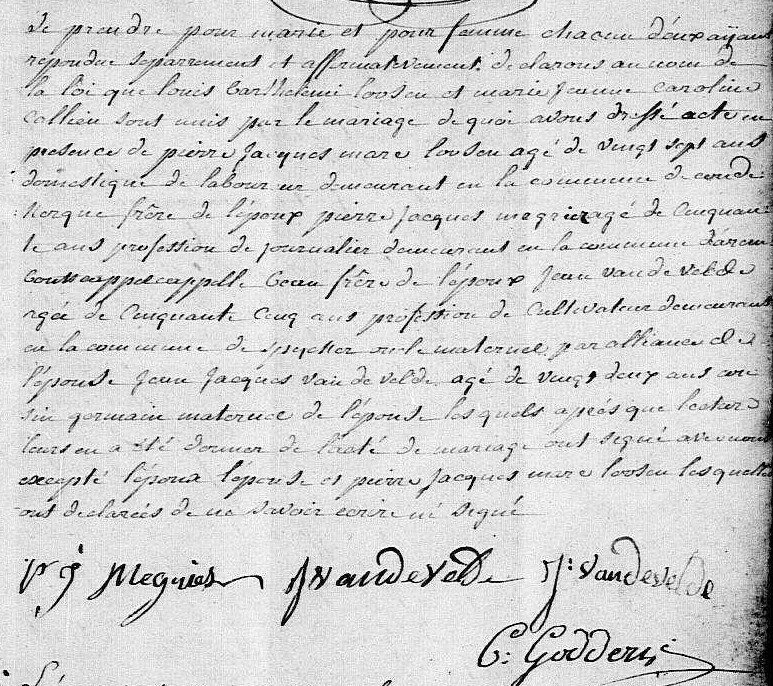 de prendre pour marie et pour famme chacun d'eux ayant
repondue separrement et affirmatevement. declarons au nom de
la loi que louis Barthelemi loosen et marie jeanne caroline
Collieu sont unis par le mariage de quoi avons dressé acte en
presence de pierre Jacques marc loosen agé de vingt sept ans
domestique de laboureur demeurant en la commune de coude
Kerque frère de l'époux pierre Jacques megnier agé de Cinquan
te ans profession de journalier demeurant en la commune
cappelle beau frère de l'époux Jean vandevelde
agée de Cinquante Cinq ans profession de Cultevateur demeurant
en la commune de spycker oncle maternel par alliance de
l'épouse Jean Jacques vandevelde agé de vingt deux ans cou
sin germain maternel de l'épouse les quels après que lecture
leurs en a été donner de l'acté de mariage ont signé avec nous
excepté l'époux l'épouse et pierre Jacques marc loosen les quelles
ont declarées de ne savoir ecrire ni signé
p j Megnier J vandevelde J: vandevelde
C: Godderis